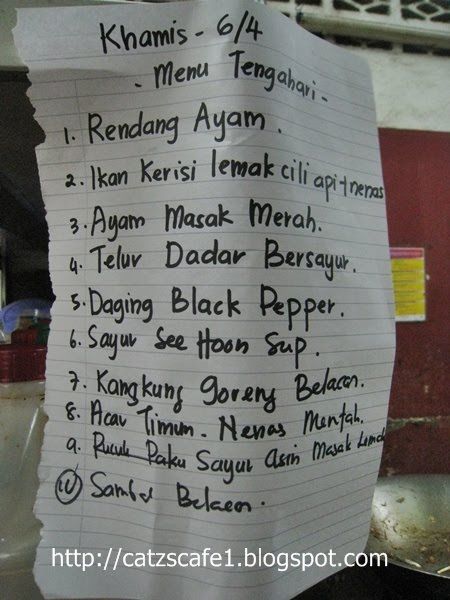 Khamis - 6/4
- Menu Tengahari -
1. Rendang Ayam.
2. Ikan Kerisi lemak cili api + nenas
3. Ayam Masak Merah.
4. Telur Dadar Bersayur.
5. Daging Black Pepper.
6. Sayur See Hoon Sup.
7. Kangkung goreng Belacan.
8. Acar Timun - Nenas Mentah.
9. Pucuk Paku Sayur Asin Masak Lemak
10 Sambal Belacan.
http://catzscafe1.blogspot.com